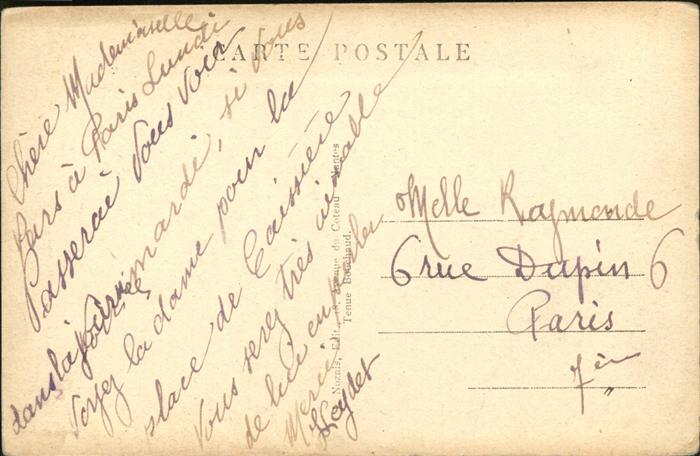 CARTE POSTALE
Chère Mademoiselle
Pars à Paris Lundi
Passerai Vous voir
dans la journée mardi, si vous
voyez la dame pour la
place de Caissière
Vous serez très aimable
de lui en parler
Merci
Nozais, Edit., du Coteau, Nantes
Tenue Bouchaud.
Melle Raymonde
6 rue Dupin 6
Paris
7ème